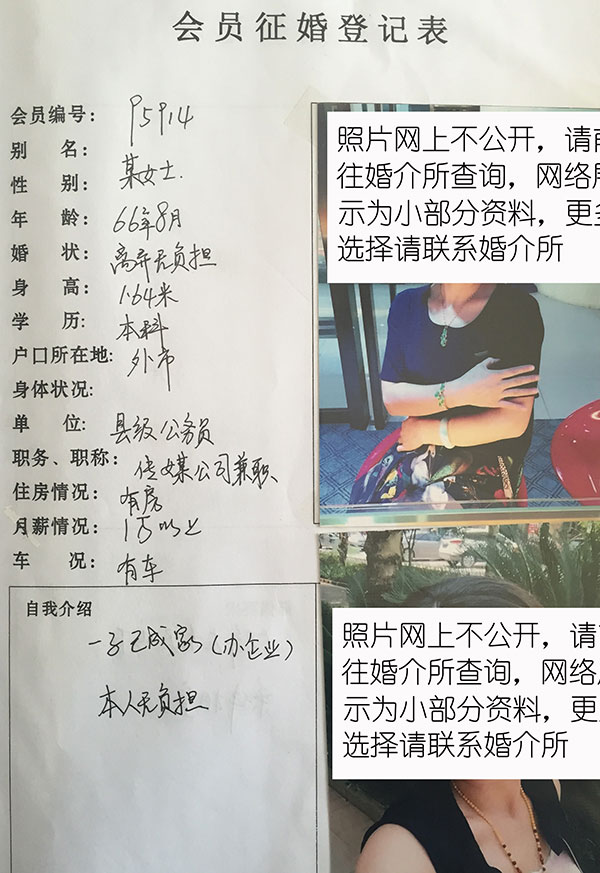 会员征婚登记表
会员编号: P5914
别 名: 某女士.
性 别:
年 龄: 66年8月
婚 状: 离异无负担
身 高: 1.64米
学 历: 本科
户口所在地: 外市
身体状况:
单 位: 县级公务员
职务、职称: 传媒公司兼职
住房情况: 有房
月薪情况: 1万以上
车 况: 有车
自我介绍
一子已成家(办企业)
本人无负担
照片网上不公开，请前
往婚介所查询，网络
示为小部分资料，更多
选择请联系婚介所
照片网上不公开，请
往婚介所查询，网络
示为小部分资料，更
选择请联系婚介所